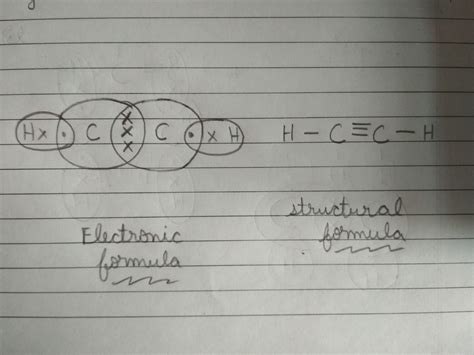 Hx . C xxx C . x H
H – C ≡ C – H
Electronic
formula
structural
formula